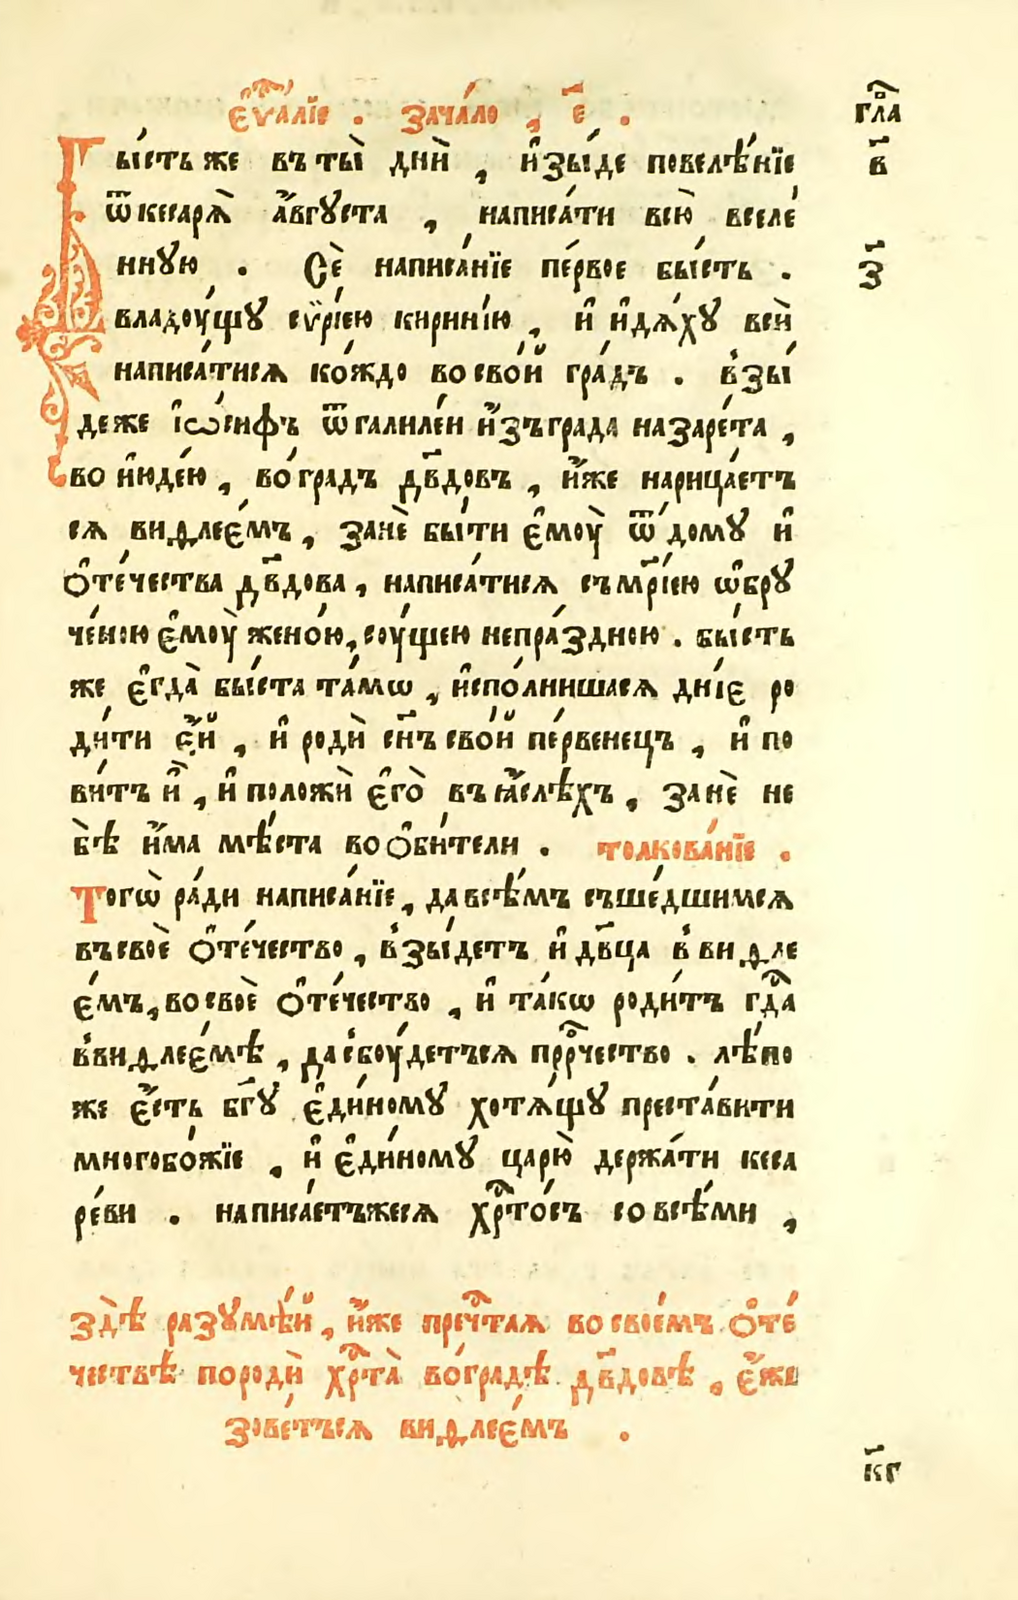 є҆ѵⷢ҇аліе . зача́ло , є҃ .
гла̑
Бы́сть же въ ты̀ дни̑ , и҆зы́де повелѣ́нїе
в҃
ѿ ке́сарѧ̀ а҆́вгꙋста , написа́ти всю̀ вселе́
ннꙋю . Сѐ написа́нїе пе́рвое бы́сть .
з҃
владоу́щꙋ сѷрі́ею кирині́ю , и҆ и҆дѧ́хꙋ всѝ
написа́тисѧ ко́ждо во сво́й гра́дъ . в̾зы́
де же і҆ѡ́сифъ ѿ галиле́и и҆з̾ъ града назаре́та ,
во и҆юде́ю , во́ градъ дв҃довъ , и҆́же нарица́етъ
сѧ виѳлеє́мъ , занѐ бы́ти є҆моу̀ ѿ до́мꙋ и҆
ѻ҆те́чества дв҃дова , написа́тисѧ съ мр҃і́ею ѡ҆брꙋ
че́ною є҆моу̀ жено́ю , соу́щею непра́здною . бы́сть
же є҆гда̀ бы́ста та́мѡ , и҆спо́лнишасѧ дні́є ро
ди́ти є҆́й , и҆ родѝ сн҃ъ сво́й пе́рвенецъ , и҆ по
ви́тъ и҆̀ , и҆ положѝ є҆го̀ въ ꙗ҆́слѣхъ , занѐ не
бѣ̀ и҆́ма мѣ́ста во ѻ҆би́тели . толкова́нїе .
Тогѡ̀ ра́ди написа́нїе , да всѣ́мъ съше́дшимсѧ
въ своѐ ѻ҆те́чество , в̾зы́детъ и҆ дв҃ца в̾ виѳле
є́мъ , во своѐ ѻ҆те́чество , и҆ та́кѡ роди́тъ гдⷭ҇а
в̾виѳлеє́мѣ , да сбоу́детъсѧ прⷪ҇рчество . лѣ́по
же є҆́сть бг҃ꙋ є҆ди́номꙋ хотѧ́щꙋ преста́вити
многобо́жїе , и҆ є҆ди́номꙋ царю̀ держа́ти кеса
ре́ви . написа́етъжесѧ хрⷭ҇то́съ со всѣ́ми ,
здѣ̀ разꙋмѣ́й , и҆́же пречⷭ҇таѧ во свое́мъ ѻ҆те́
чествѣ породѝ хрⷭ҇та̀ во́ градѣ дв҃довѣ , є҆́же
зове́тъсѧ виѳлеє́мъ .
к҃г